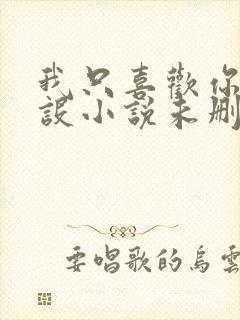 我只喜歡你
設小説未刪
要唱歌的烏雲